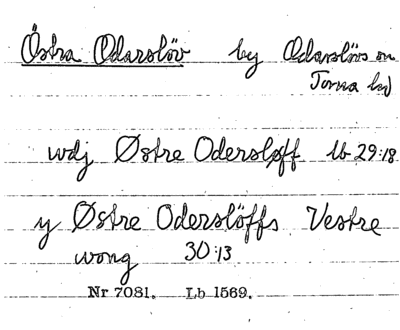 Östra Odarslöv by Odarslövs sn
Torna hd
wdj Østre Odersløff lb 29:18
y Østre Oderslöffs Vestre
wong 30:13
Nr 7081. Lb 1569.